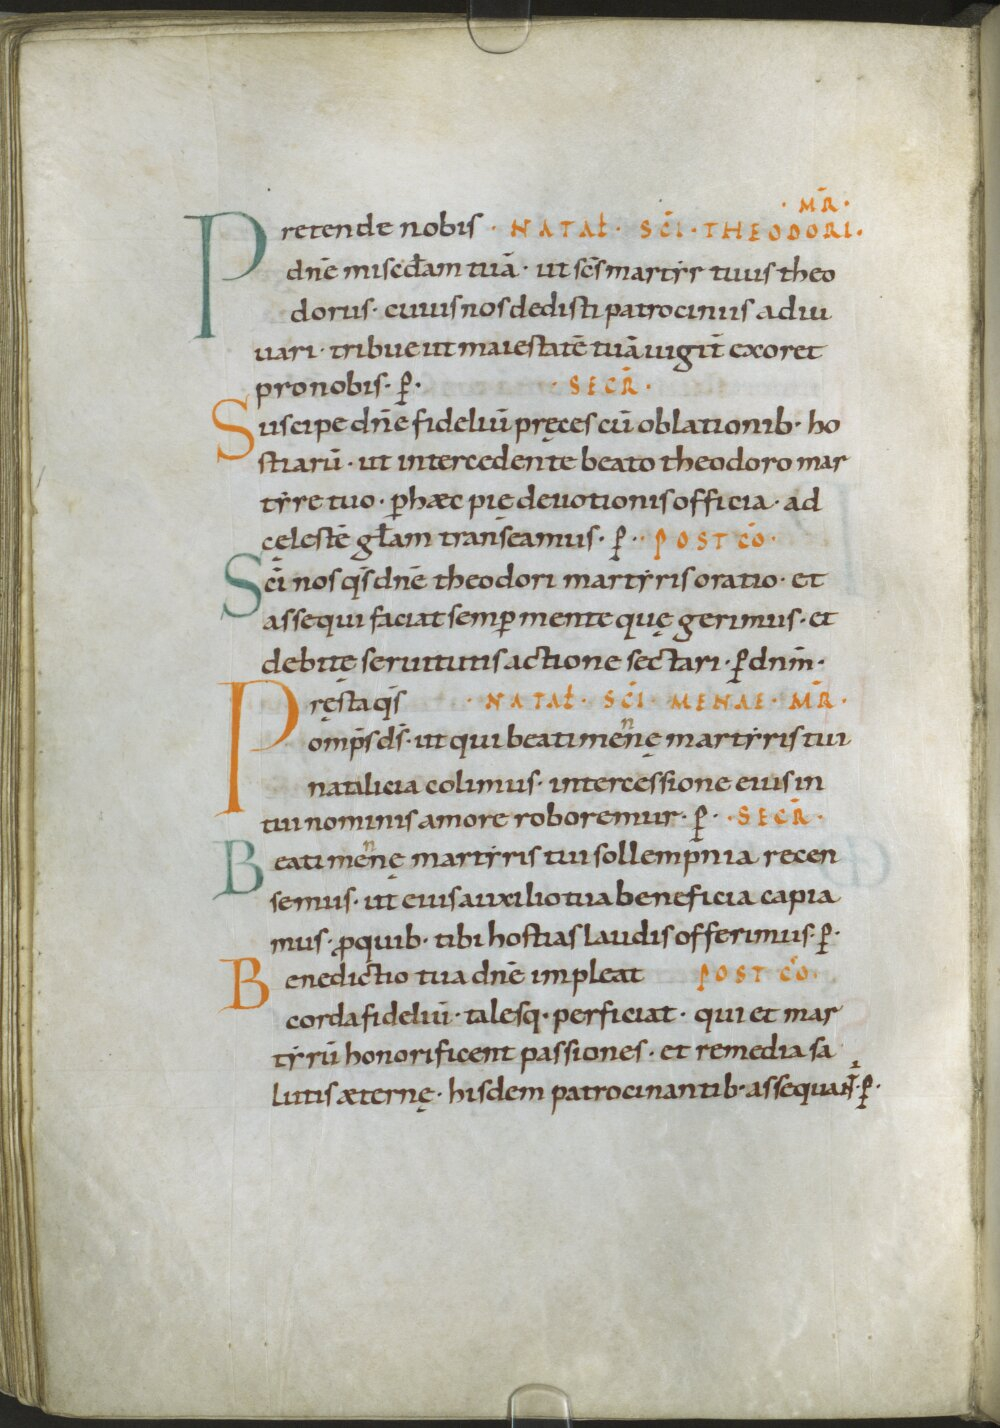 Pretende nobis · NATAL̄ · SC̄I · THEODORI · MR̄ ·
dn̄e miscđam tuā · ut sc̄s martyr tuus theo
dorus · cuius nos dedisti patrociniis adiu
uari · tribue ut maiestatē tuā iugit̄ exoret
pro nobis · ꝑ · · SECR̄ ·
Suscipe dn̄e fideliū pręces cū oblationib · ho
stiarū · ut intercedente beato theodoro mar
tyre tuo · ꝑ hæc pię deuotionis officia · ad
cęlestē gl̄am transeamus · ꝑ · · POST CŌ ·
Sc̄i nos qs̄ dn̄e theodori martyris oratio · et
assequi faciat semꝑ mente quę gerimus · et
debitę seruitutis actione sectari · ꝑ dnm̄ ·
Pręsta qs̄ · NATAL̄ · SC̄I · MENAE · MR̄ ·
omps̄ ds̄ · ut qui beati mennę martyris tui
natalicia colimus · intercessione eius in
tui nominis amore roboremur · ꝑ · · SECR̄ ·
Beati mennę martyris tui sollempnia recen
semus · ut eius auxilio tua beneficia capia
mus · ꝓ quib · tibi hostias laudis offerimus · ꝑ ·
Benedictio tua dn̄e impleat POST CŌ ·
corda fideliū · talesq · perficiat · qui et mar
tyrū honorificent passiones · et remedia sa
lutis æternę · hisdem patrocinantib · assequant̄ · ꝑ ·